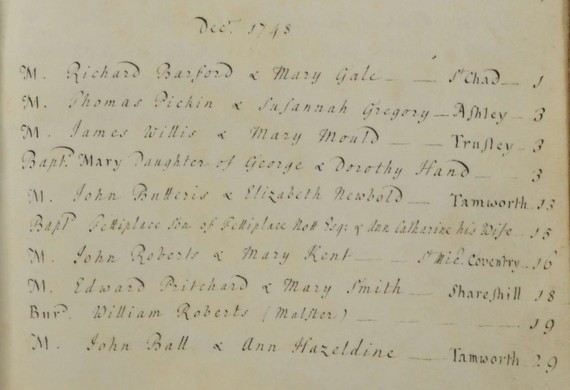 Decr. 1748
M. Richard Barford & Mary Gale — — St Chad — 1
M. Thomas Pickin & Susannah Gregory — Ashley — 3
M. James Willis & Mary Mould — Trusley — 3
Bapt. Mary Daughter of George & Dorothy Hand — 3
M. John Butteris & Elizabeth Newbold — Tamworth 13
Bapt Fettiplace Son of Fettiplace Nott Esq: & Ann Catharine his Wife — 15
M. John Roberts & Mary Kent — St Mic. Coventry — 16
M. Edward Pritchard & Mary Smith — Shareshill 18
Burd. William Roberts (Malster) — — — — 19
M. John Ball & Ann Hazeldine — Tamworth 29